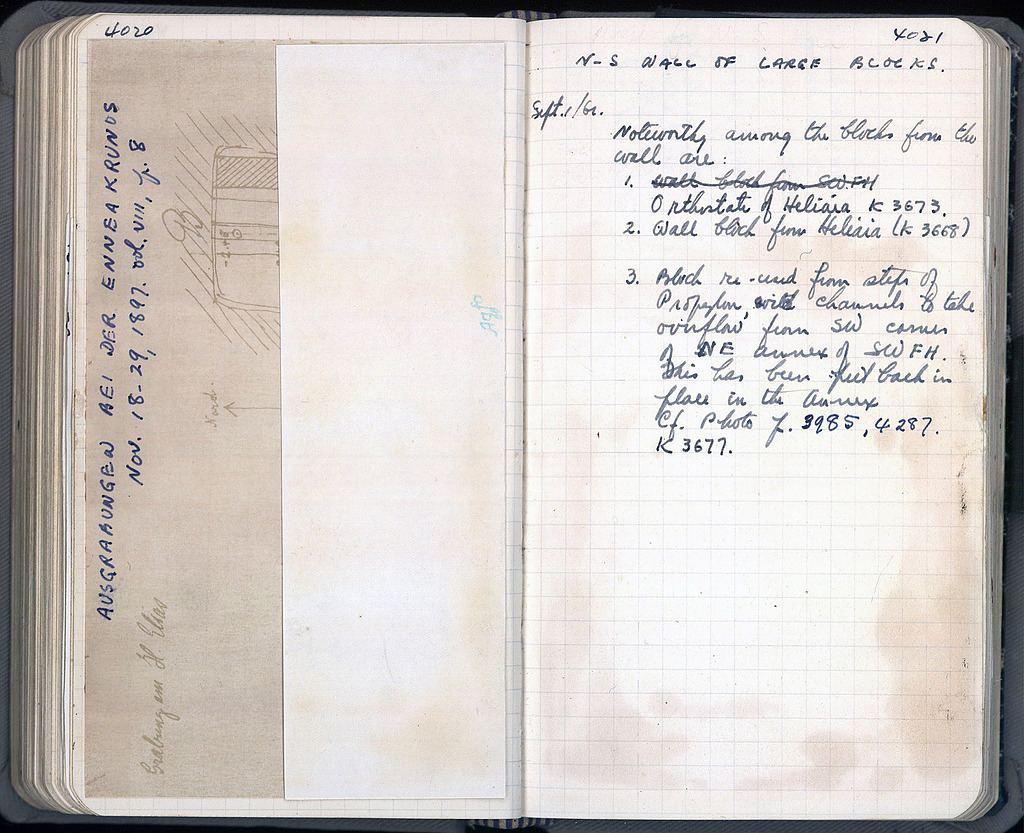 4020
AUSGRABUNGEN BEI DER ENNEAKRUNOS
NOV. 18-29, 1897. vol. VIII, p. 8
B
Nord.
Grabung am H. Elias
4021
N-S WALL OF LARGE BLOCKS.
Sept. 1/
Noteworthy among the blocks from the
wall are:
1. wall block from SWFH
Orthostate of Heliaia K 3673.
2. Wall block from Heliaia (K 3668)
3. Block re-used from steps of
Propylon, with channels to take
overflow from SW corner
of NE annex of SWFH.
This has been put back in
place in the Annex
Cf. Photo p. 3985, 4287.
K 3677.